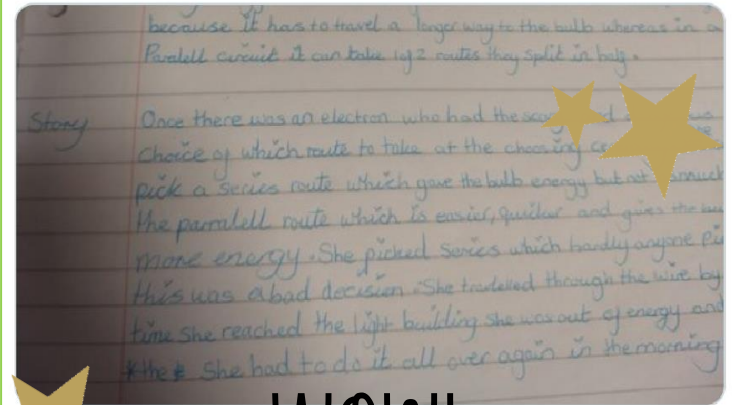 because it has to travel a longer way to the bulb whereas in a
Paralell circuit it can take 1 of 2 routes they split in half.
Story Once there was an electron who had the
choice of which route to take at the choosing
pick a series route which gave the bulb energy but not
the parralell route which is easier, quicker and gives the
more energy. She picked series which hardly anyone
this was a bad decision. She travelled through the wire by
time she reached the light building she was out of energy and
*the* She had to do it all over again in the morning